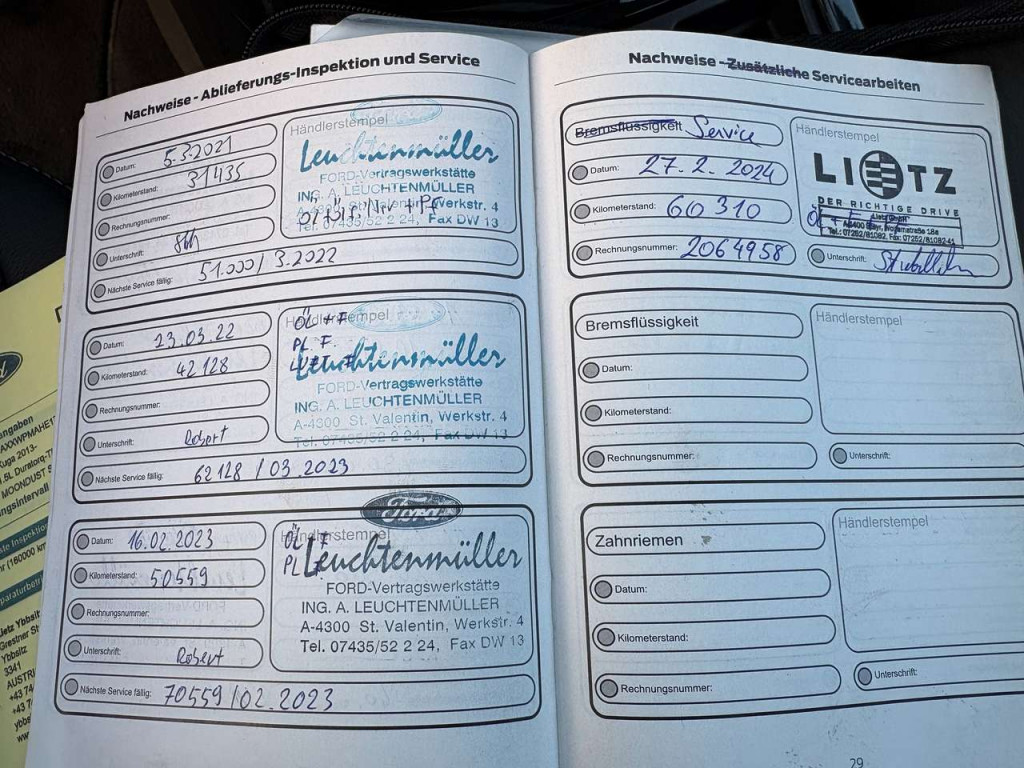 Nachweise - Ablieferungs-Inspektion und Service
Datum: 5.3.2021
Kilometerstand: 31435
Rechnungsnummer:
Unterschrift:
Nächste Service fällig: 51.000/3.2022
Händlerstempel
Leuchtenmüller
FORD-Vertragswerkstätte
ING. A. LEUCHTENMÜLLER
A-4300 St. Valentin, Werkstr. 4
Tel. 07435/52 2 24, Fax DW 13
Datum: 23.03.22
Kilometerstand: 42128
Rechnungsnummer:
Unterschrift: Robert
Nächste Service fällig: 62128 / 03.2023
Händlerstempel
ÖL + F
PL F.
Leuchtenmüller
FORD-Vertragswerkstätte
ING. A. LEUCHTENMÜLLER
A-4300 St. Valentin, Werkstr. 4
Tel. 07435/52 2 24, Fax DW 13
Datum: 16.02.2023
Kilometerstand: 50559
Rechnungsnummer:
Unterschrift: Robert
Nächste Service fällig: 70559/02.2023
Ford
Händlerstempel
Leuchtenmüller
FORD-Vertragswerkstätte
ING. A. LEUCHTENMÜLLER
A-4300 St. Valentin, Werkstr. 4
Tel. 07435/52 2 24, Fax DW 13
Nachweise - Zusätzliche Servicearbeiten
Bremsflüssigkeit Service
Datum: 27.2.2024
Kilometerstand: 60310
Rechnungsnummer: 2064958
Händlerstempel
LIETZ
DER RICHTIGE DRIVE
Lietz GmbH
Unterschrift:
Bremsflüssigkeit
Datum:
Kilometerstand:
Rechnungsnummer:
Händlerstempel
Unterschrift:
Zahnriemen
Datum:
Kilometerstand:
Rechnungsnummer:
Händlerstempel
Unterschrift:
29
Kuga 2013-
MOONDUST
Lietz Ybbsitz
Ybbsitz
3341